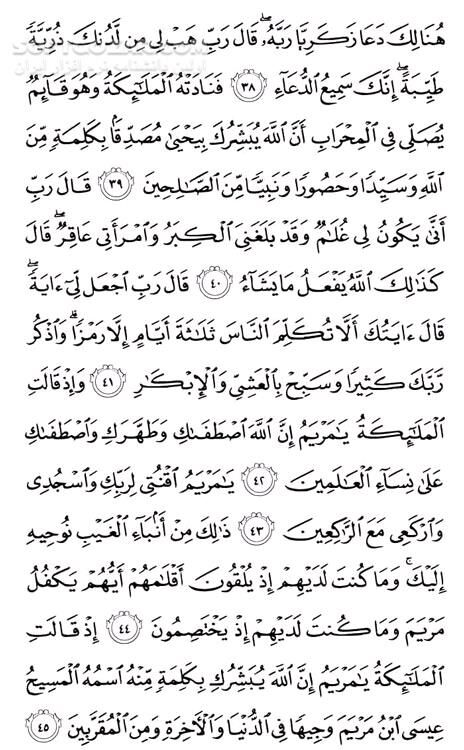 هُنَالِكَ دَعَا زَكَرِيَّا رَبَّهُۥ ۖ قَالَ رَبِّ هَبْ لِى مِن لَّدُنكَ ذُرِّيَّةً
طَيِّبَةً ۖ إِنَّكَ سَمِيعُ ٱلدُّعَآءِ ٣٨ فَنَادَتْهُ ٱلْمَلَـٰٓئِكَةُ وَهُوَ قَآئِمٌ
يُصَلِّى فِى ٱلْمِحْرَابِ أَنَّ ٱللَّهَ يُبَشِّرُكَ بِيَحْيَىٰ مُصَدِّقًۢا بِكَلِمَةٍ مِّنَ
ٱللَّهِ وَسَيِّدًا وَحَصُورًا وَنَبِيًّا مِّنَ ٱلصَّـٰلِحِينَ ٣٩ قَالَ رَبِّ
أَنَّىٰ يَكُونُ لِى غُلَـٰمٌ وَقَدْ بَلَغَنِىَ ٱلْكِبَرُ وَٱمْرَأَتِى عَاقِرٌ ۖ قَالَ
كَذَٰلِكَ ٱللَّهُ يَفْعَلُ مَا يَشَآءُ ٤٠ قَالَ رَبِّ ٱجْعَل لِّىٓ ءَايَةً ۖ
قَالَ ءَايَتُكَ أَلَّا تُكَلِّمَ ٱلنَّاسَ ثَلَـٰثَةَ أَيَّامٍ إِلَّا رَمْزًا ۗ وَٱذْكُر
رَّبَّكَ كَثِيرًا وَسَبِّحْ بِٱلْعَشِىِّ وَٱلْإِبْكَـٰرِ ٤١ وَإِذْ قَالَتِ
ٱلْمَلَـٰٓئِكَةُ يَـٰمَرْيَمُ إِنَّ ٱللَّهَ ٱصْطَفَىٰكِ وَطَهَّرَكِ وَٱصْطَفَىٰكِ
عَلَىٰ نِسَآءِ ٱلْعَـٰلَمِينَ ٤٢ يَـٰمَرْيَمُ ٱقْنُتِى لِرَبِّكِ وَٱسْجُدِى
وَٱرْكَعِى مَعَ ٱلرَّٰكِعِينَ ٤٣ ذَٰلِكَ مِنْ أَنۢبَآءِ ٱلْغَيْبِ نُوحِيهِ
إِلَيْكَ ۚ وَمَا كُنتَ لَدَيْهِمْ إِذْ يُلْقُونَ أَقْلَـٰمَهُمْ أَيُّهُمْ يَكْفُلُ
مَرْيَمَ وَمَا كُنتَ لَدَيْهِمْ إِذْ يَخْتَصِمُونَ ٤٤ إِذْ قَالَتِ
ٱلْمَلَـٰٓئِكَةُ يَـٰمَرْيَمُ إِنَّ ٱللَّهَ يُبَشِّرُكِ بِكَلِمَةٍ مِّنْهُ ٱسْمُهُ ٱلْمَسِيحُ
عِيسَى ٱبْنُ مَرْيَمَ وَجِيهًا فِى ٱلدُّنْيَا وَٱلْـَٔاخِرَةِ وَمِنَ ٱلْمُقَرَّبِينَ ٤٥